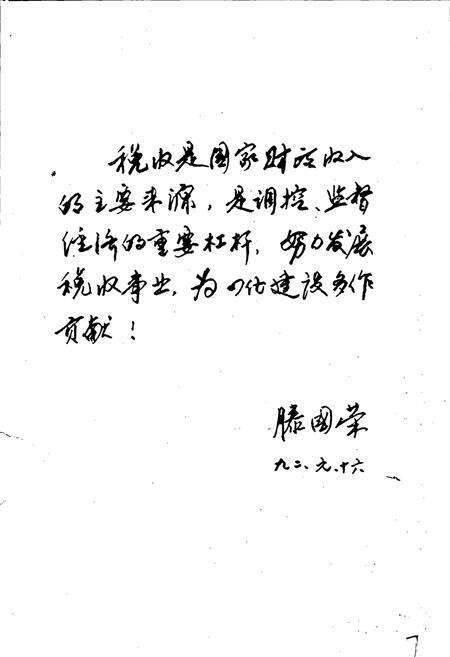 税收是国家财政收入
的主要来源，是调控、监督
经济的重要杠杆，努力发展
税收事业，为四化建设多作
贡献！
滕国荣
九二、元、十六
7